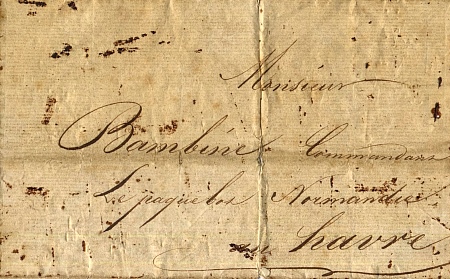 Monsieur
Bambine Commandant
Le paquebot Normandie
au havre